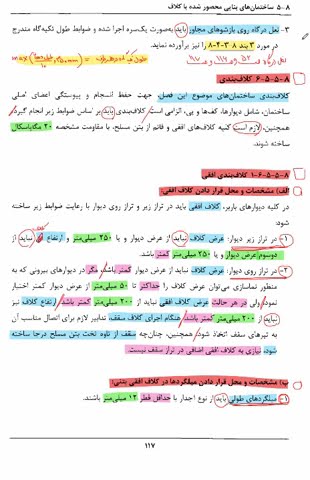 ۵-۸ ساختمان‌های بنایی محصور شده با کلاف
۳- نعل درگاه روی بازشوهای مجاور باید به‌صورت یکسره اجرا شده و ضوابط طول تکیه‌گاه مندرج
در مورد ۳ بند ۸-۳-۴-۸ را نیز برآورده نماید.
۸-۵-۵-۶ کلاف‌بندی
کلاف‌بندی ساختمان‌های موضوع این فصل، جهت حفظ انسجام و پیوستگی اعضای اصلی
ساختمان، شامل دیوارها، کف‌ها و پی، الزامی است. کلاف‌بندی باید بر اساس ضوابط زیر انجام گیرد.
همچنین، لازم است کلیه کلاف‌های افقی و قائم از بتن مسلح، با مقاومت مشخصه ۲۰ مگاپاسکال
ساخته شوند.
۸-۵-۵-۶-۱ کلاف‌بندی افقی
الف) مشخصات و محل قرار دادن کلاف افقی:
در کلیه دیوارهای باربر، کلاف افقی باید در تراز زیر و تراز روی دیوار با رعایت ضوابط زیر ساخته
شود:
۱- در تراز زیر دیوار: عرض کلاف نباید از عرض دیوار و یا ۲۵۰ میلی‌متر و ارتفاع آن نباید از
دوسوم عرض دیوار و یا ۲۵۰ میلی‌متر کمتر باشد.
۲- در تراز روی دیوار: عرض کلاف نباید از عرض دیوار کمتر باشد مگر در دیوارهای بیرونی که به
منظور نماسازی می‌توان عرض کلاف را حداکثر تا ۵۰ میلی‌متر از عرض دیوار کمتر اختیار
نمود؛ ولی در هر حالت عرض کلاف افقی نباید از ۲۰۰ میلی‌متر کمتر باشد. ارتفاع کلاف نیز
نباید از ۲۰۰ میلی‌متر کمتر باشد. هنگام اجرای کلاف سقف، تدابیر لازم برای اتصال مناسب آن
به تیرهای سقف اتخاذ شود. همچنین، چنان‌چه سقف از تاوه لخت بتن مسلح درجا ساخته
شود، نیازی به کلاف افقی اضافی در تراز سقف نیست.
ب) مشخصات و محل قرار دادن میلگردها در کلاف افقی بتنی:
۱- میلگردهای طولی باید از نوع آجدار با حداقل قطر ۱۲ میلی‌متر باشند.
۱۱۷